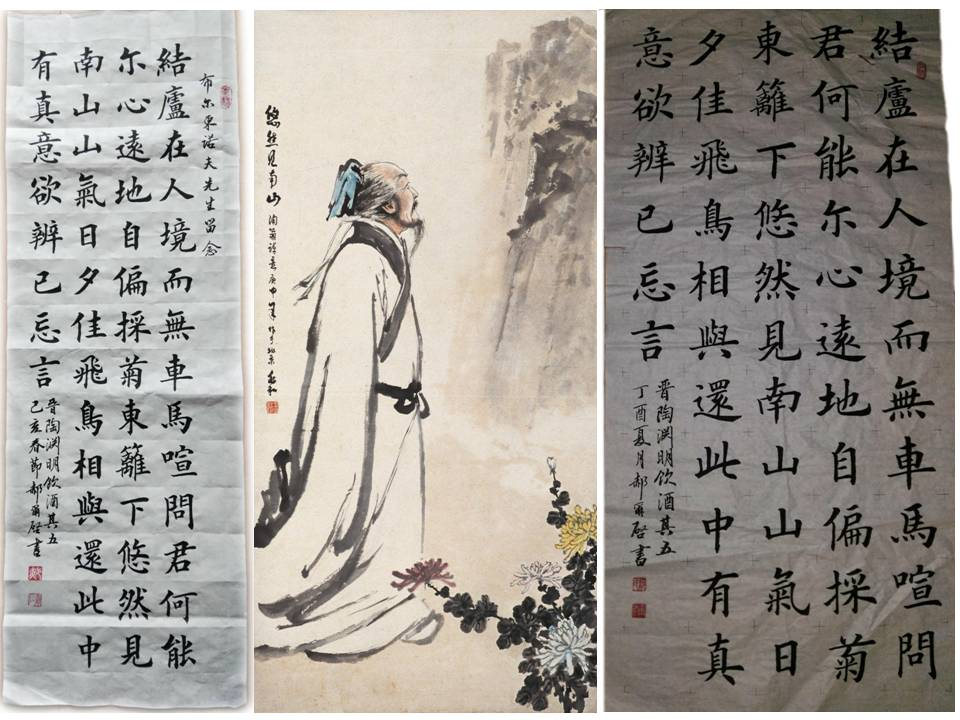 布尔東诺夫先生留念
結廬在人境而無車馬喧問君何能
尔心遠地自偏採菊東籬下悠然見
南山山氣日夕佳飛鳥相與還此中
有真意欲辨已忘言
晋陶渊明飲酒其五
己亥春節郝爾啓書
悠然見南山
結廬在人境而無車馬喧問
君何能尔心遠地自偏採菊
東籬下悠然見南山山氣日
夕佳飛鳥相與還此中有真
意欲辨已忘言
晋陶渊明飲酒其五
丁酉夏月郝爾啓書